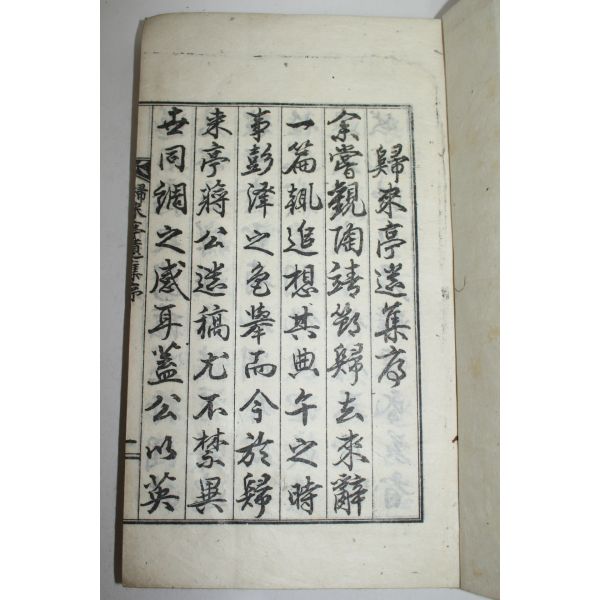 歸來亭遺集序
余嘗觀陶靖節歸去來辭
一篇輒追想其典午之時
事彭澤之危舉而今於歸
來亭蔣公遺稿尤不禁異
世同調之感耳蓋公以英
歸來亭遺集序
二